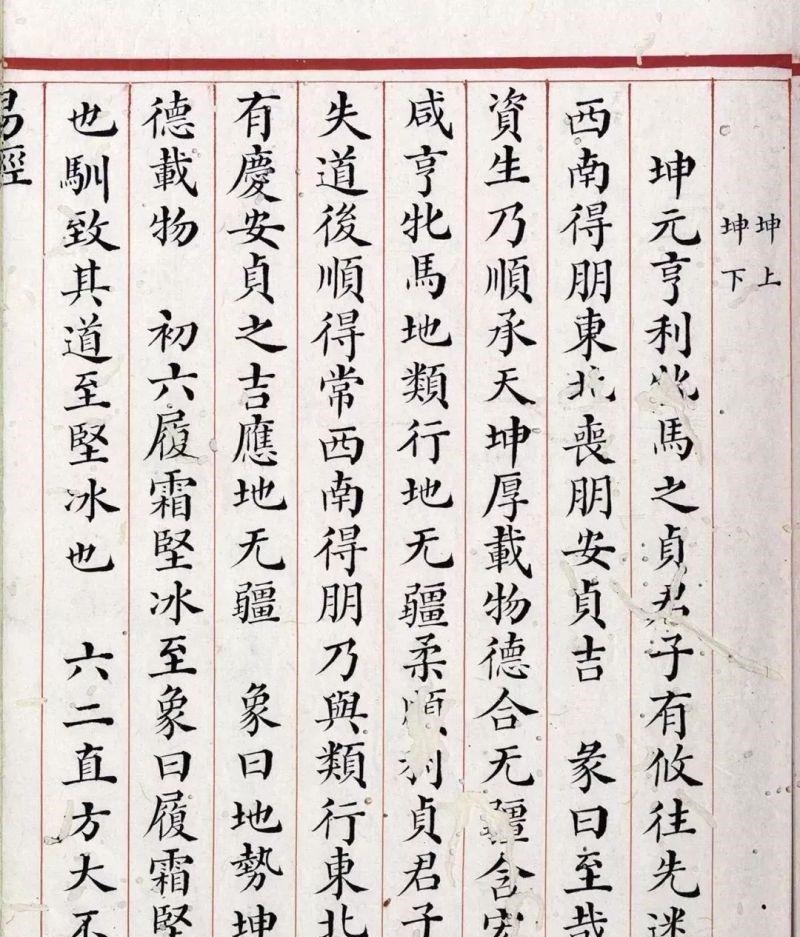 坤上
坤下
坤元亨利牝馬之貞君子有攸往先迷
西南得朋東北喪朋安貞吉　彖曰至哉
資生乃順承天坤厚載物德合无疆含宏
咸亨牝馬地類行地无疆柔順利貞君子
失道後順得常西南得朋乃與類行東北
有慶安貞之吉應地无疆　象曰地勢坤
德載物　初六履霜堅冰至象曰履霜堅
也馴致其道至堅冰也　六二直方大不
易經